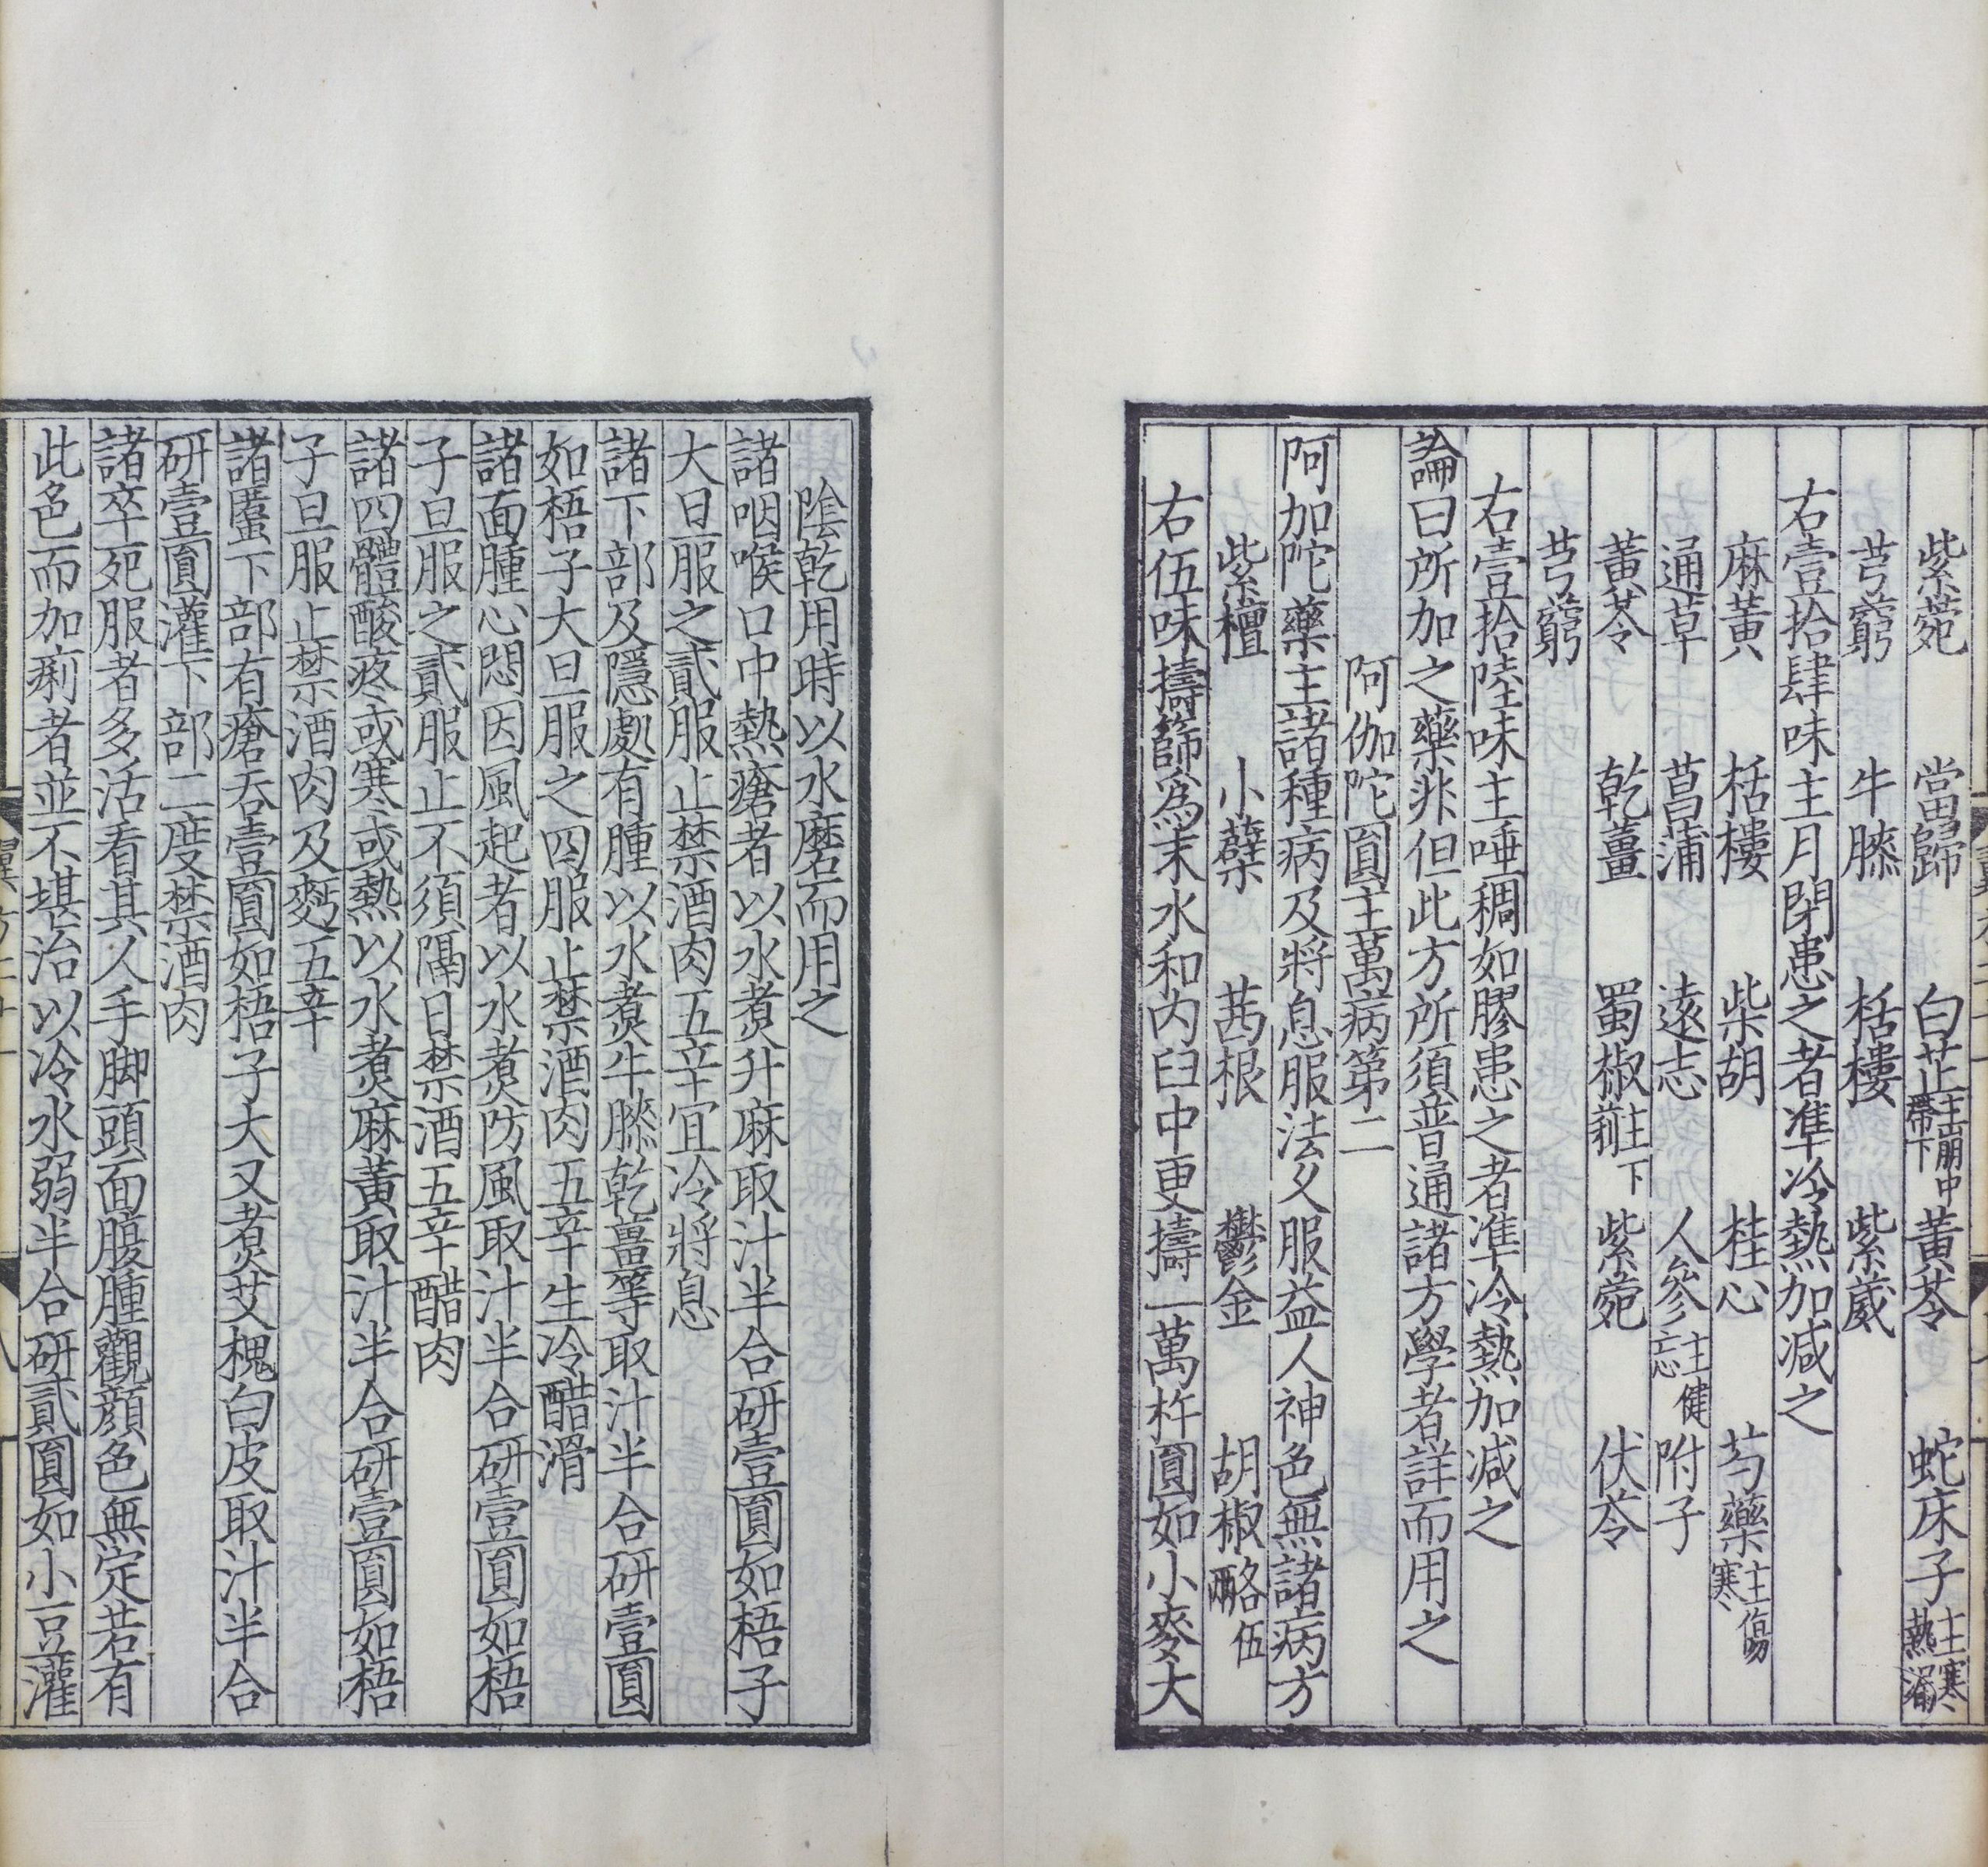 紫菀 當歸 白芷主崩中帶下 黃芩 蛇床子主寒熱漏
芎藭 牛膝 栝樓 紫葳
右壹拾肆味主月閉患之者準冷熱加减之
麻黃 栝樓 柴胡 桂心 芍藥主傷寒
通草 菖蒲 遠志 人參主健忘 附子
黃芩 乾薑 蜀椒主下 紫菀 伏苓
芎藭
右壹拾陸味主唾稠如膠患之者準冷熱加减之
論曰所加之藥非但此方所須普通諸方學者詳而用之
阿伽陀圓主萬病第二
阿加陀藥主諸種病及將息服法久服益人神色無諸病方
紫檀 小蘗 茜根 鬱金 胡椒各伍兩
右伍味擣篩爲末水和内臼中更擣一萬杵圓如小麥大
陰乾用時以水磨而用之
諸咽喉口中熱瘡者以水煮升麻取汁半合研壹圓如梧子
大旦服之貳服止禁酒肉五辛宜冷將息
諸下部及隱處有腫以水煮牛膝乾薑等取汁半合研壹圓
如梧子大旦服之四服止禁酒肉五辛生冷醋滑
諸面腫心悶因風起者以水煮防風取汁半合研壹圓如梧
子旦服之貳服止不須隔日禁酒五辛醋肉
諸四體酸疼或寒或熱以水煮麻黃取汁半合研壹圓如梧
子旦服止禁酒肉及麪五辛
諸䘌下部有瘡吞壹圓如梧子大又煮艾槐白皮取汁半合
研壹圓灌下部二度禁酒肉
諸卒死服者多活看其人手脚頭面腹腫觀顔色無定若有
此色而加痢者並不堪治以冷水弱半合研貳圓如小豆灌